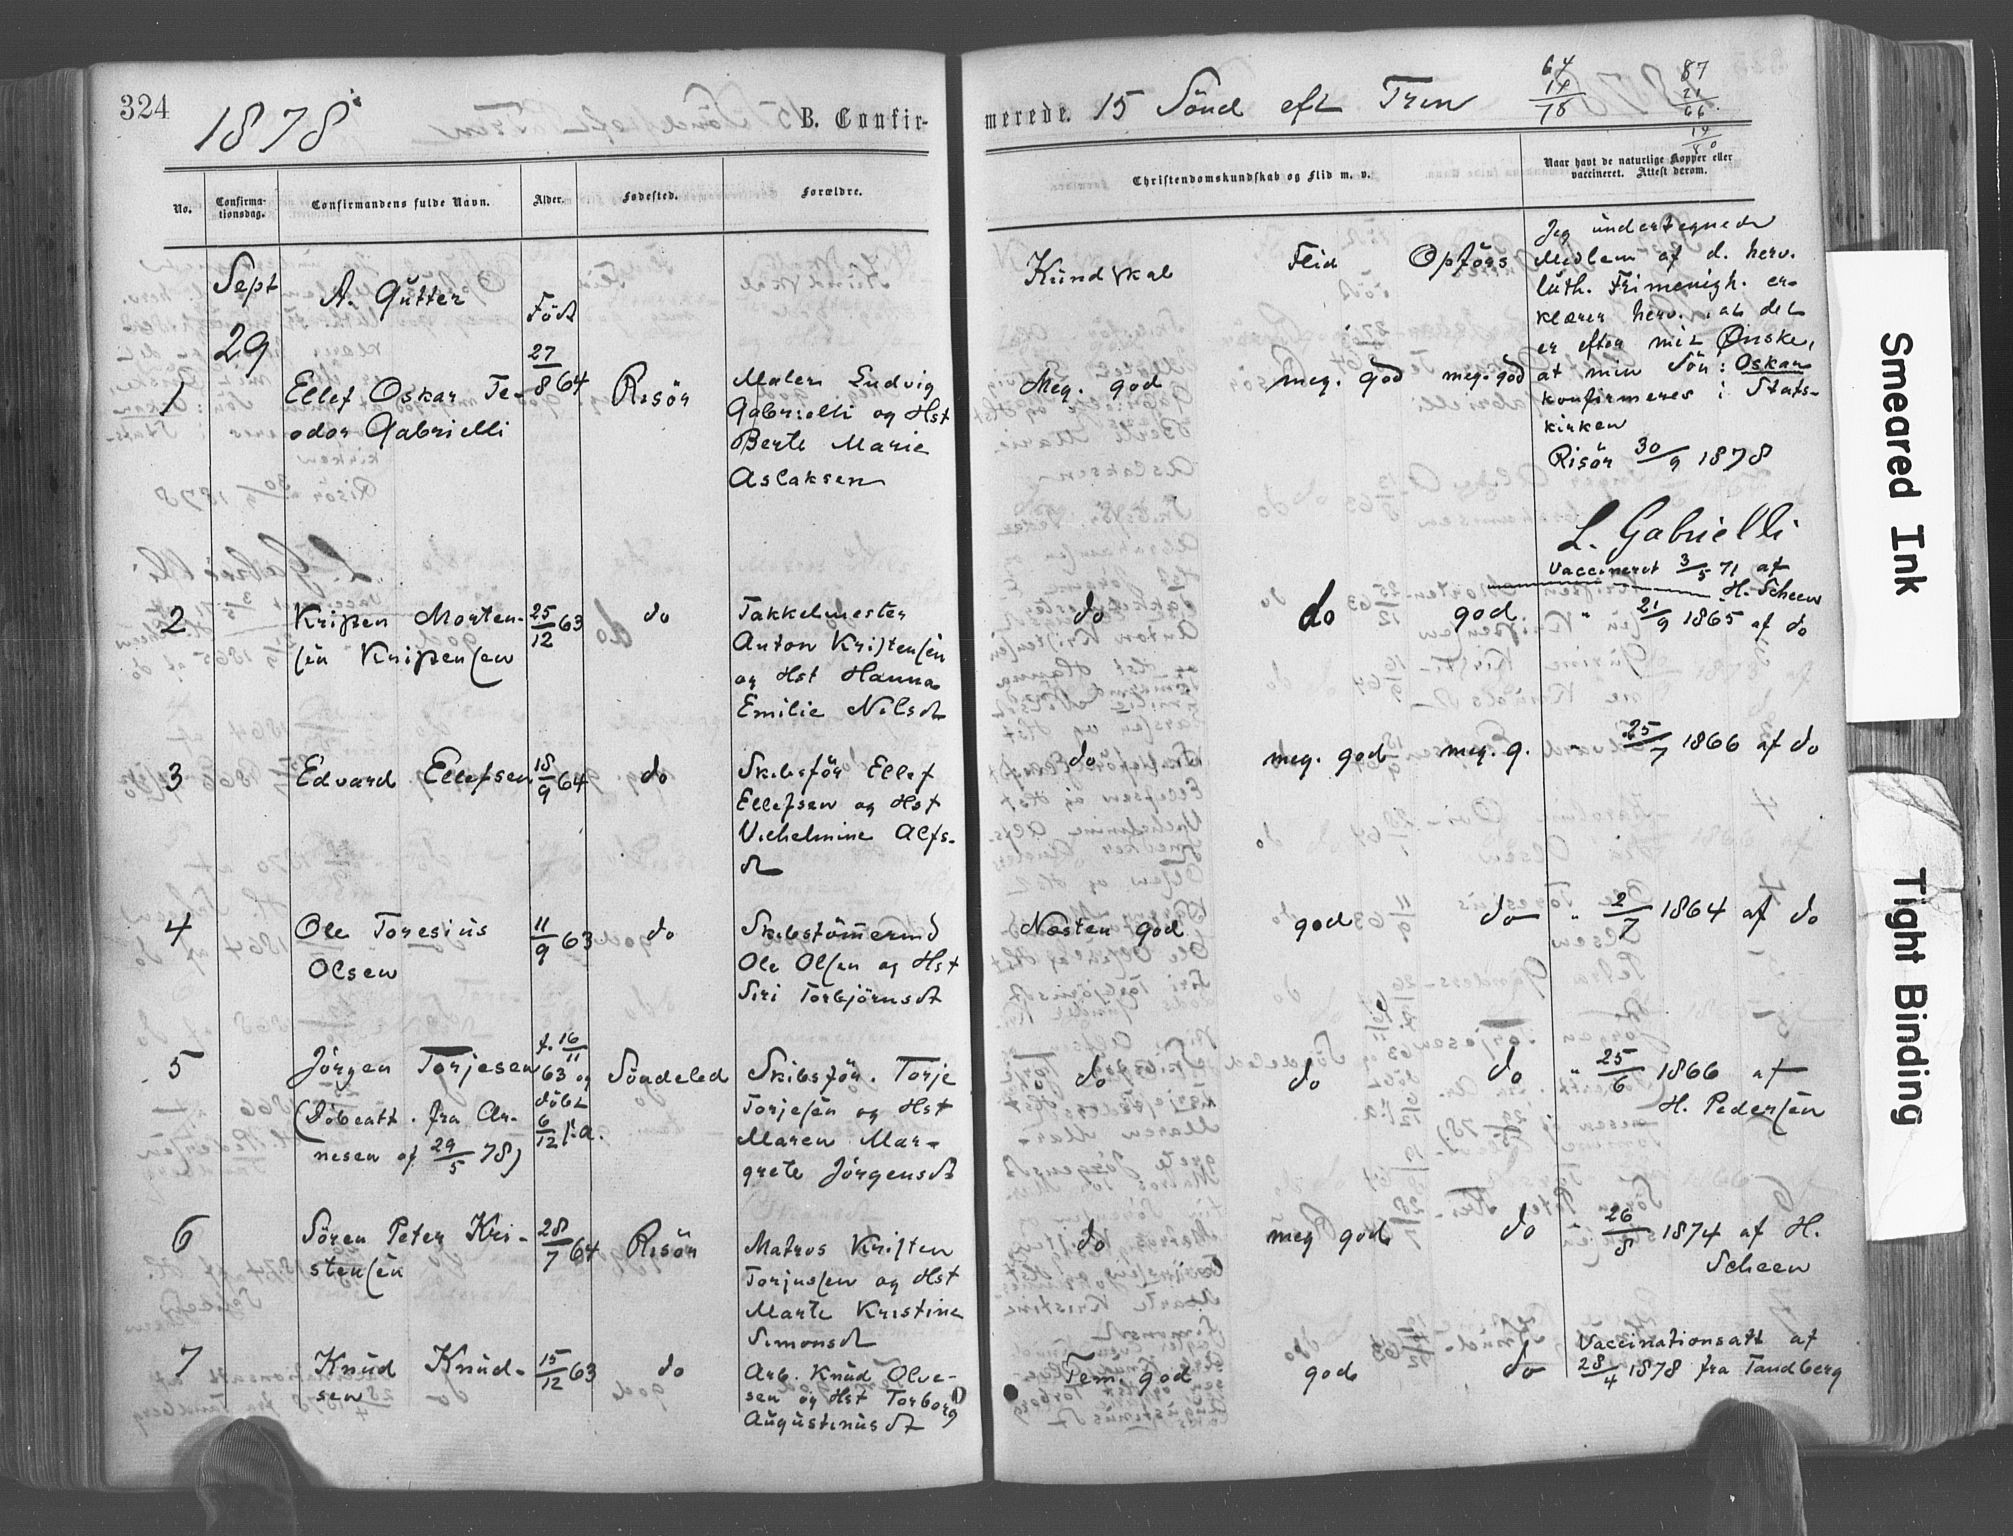 324
1878
B. Confir-
merede. 15 Sönd eft Trin
64
14
78
87
21
66
14
80
No.
Confirma-
tionsdag.
Confirmandens fulde Navn.
Alder.
Fødested.
Forældre.
Christendomskundskab og Flid m. v.
Naar havt de naturlige Kopper eller
vaccineret. Attest derom.
Sept
29
A. Gutter
Född
Kundskab
Flid
Opförs
Jeg undertegnede
Medlem af d. herv.
luth. Frimenigh. er-
klærer herv. at det
er efter mit Ønske,
at min Sön: Oskar
konfirmeres i Stats-
kirken
Risör 30/9 1878
L. Gabrielli
Vaccineret 3/5 71 af
H. Scheen
1
Ellef Oskar Te-
odor Gabrielli
27/8 64
Risör
Maler Ludvig
Gabrielli og Hst
Berte Marie
Aslaksen
Meg. god
meg. god
meg. god
2
Krißen Morten-
sen Krißensen
25/12 63
do
Takkelmester
Anton Kristensen
og Hst Hanna
Emilie Nilsdt
do
do
god
" 21/9 1865 af do
3
Edvard Ellefsen
18/9 64
do
Skibsför Ellef
Ellefsen og Hst
Vilhelmine Alfs-
dt
do
meg. god
meg. g.
" 25/7 1866 af do
4
Ole Toresius
Olsen
11/9 63
do
Skibstömermd
Ole Olsen og Hst
Siri Torbjörnsdt
Næsten god
god
do
" 2/7 1864 af do
5
Jörgen Torjesen
(Döbeatt. fra Ar-
nesen af 29/5 78)
f. 16/11
63 og
döbt
6/12 s. a.
Söndeled
Skibsför. Torje
Torjesen og Hst
Maren Mar-
grete Jörgensdt
do
do
do
" 25/6 1866 af
H. Pedersen
6
Sören Peter Kri-
stensen
28/7 64
Risör
Matros Kristen
Torjussen og Hst
Marte Kristine
Simonsdt
do
meg god
do
" 26/8 1874 af H.
Scheen
7
Knud Knud-
sen
15/12 63
do
Arb. Knud Olve-
sen og Hst Torborg
Augustinusdt
Tem. god
god
do
Vaccinationsatt af
28/4 1878 fra Tandberg
Smeared Ink
Tight Binding